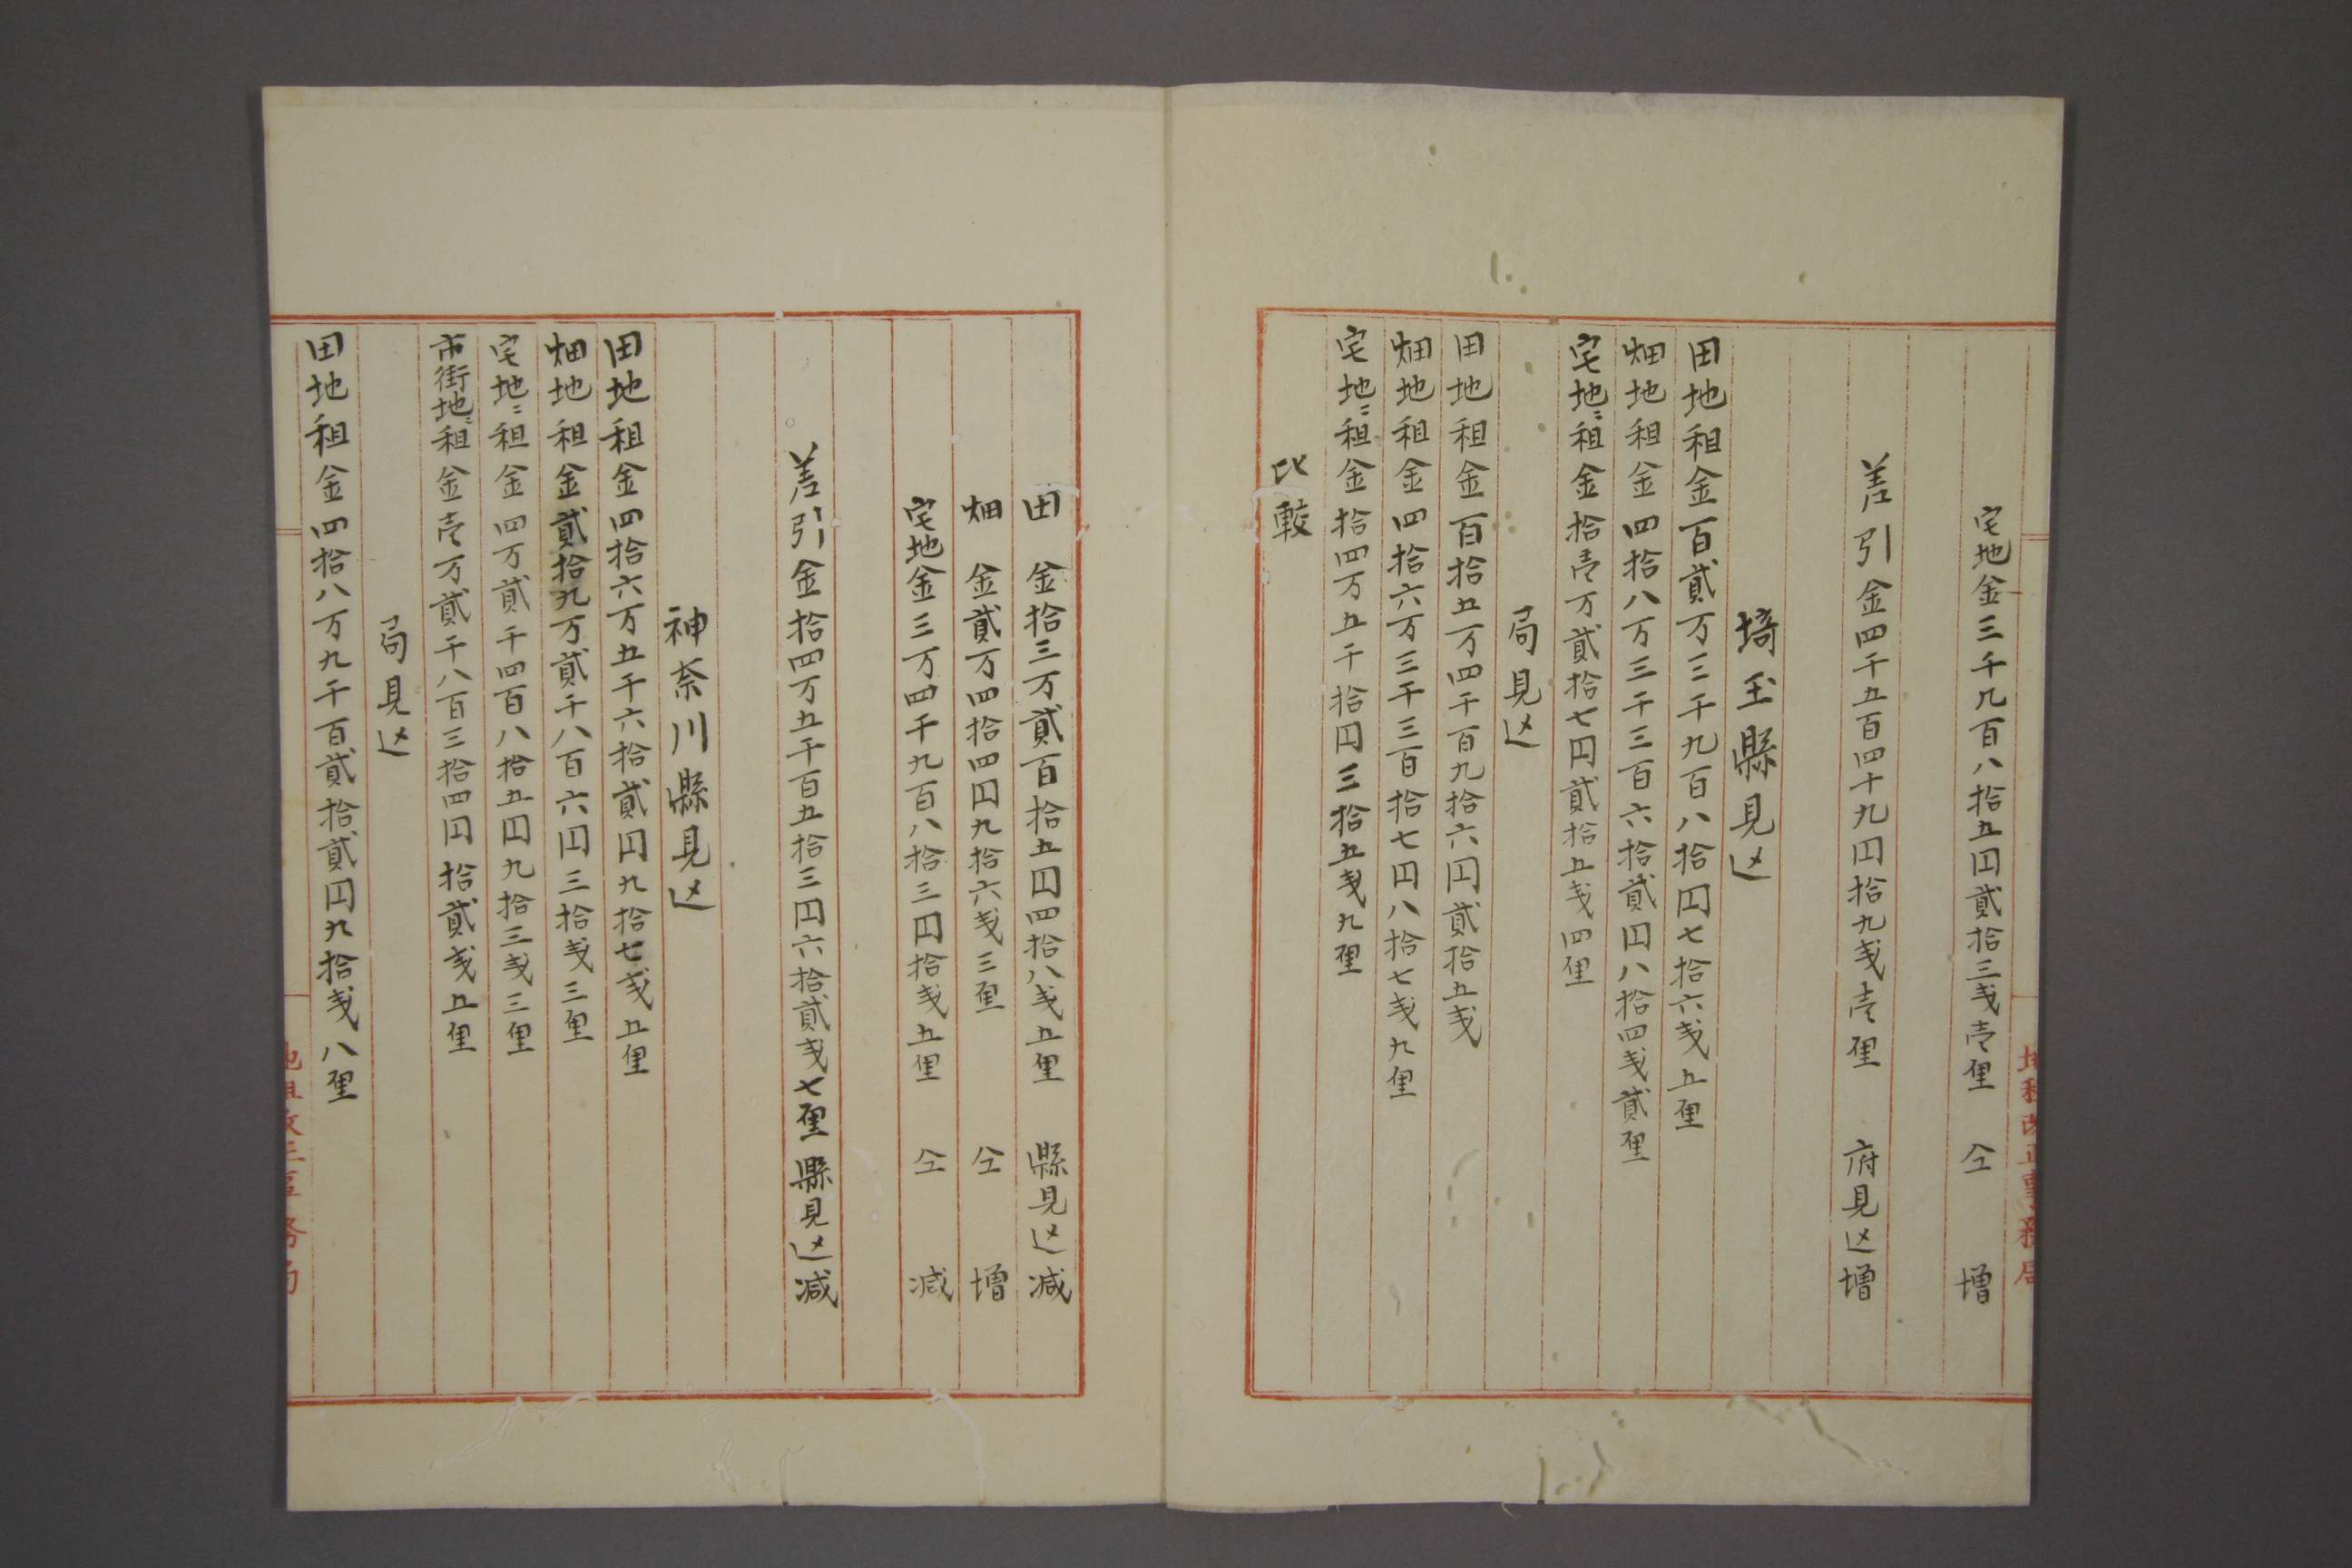 宅地金三千九百八拾五円貳拾三戋壱厘　仝　増
差引金四千五百四十九円拾九戋壱厘　府見込増
埼玉縣見込
田地租金百貳万三千九百八拾円七拾六戋五厘
畑地租金四拾八万三千三百六拾貳円八拾四戋貳厘
宅地〻租金拾壱万貳拾七円貳拾五戋四厘
局見込
田地租金百拾五万四千百九拾六円貳拾五戋
畑地租金四拾六万三千三百拾七円八拾七戋九厘
宅地〻租金拾四万五千拾円三拾五戋九厘
比較
地租改正事務局
田　金拾三万貳百拾五円四拾八戋五厘　縣見込減
畑　金貳万四拾四円九拾六戋三厘　仝　増
宅地金三万四千九百八拾三円拾戋五厘　仝　減
差引金拾四万五千百五拾三円六拾貳戋七厘縣見込減
神奈川縣見込
田地租金四拾六万五千六拾貳円九拾七戋五厘
畑地租金貳拾九万貳千八百六円三拾戋三厘
宅地〻租金四万貳千四百八拾五円九拾三戋三厘
市街地〻租金壱万貳千八百三拾四円拾貳戋五厘
局見込
田地租金四拾八万九千百貳拾貳円九拾戋八厘
地租改正事務局